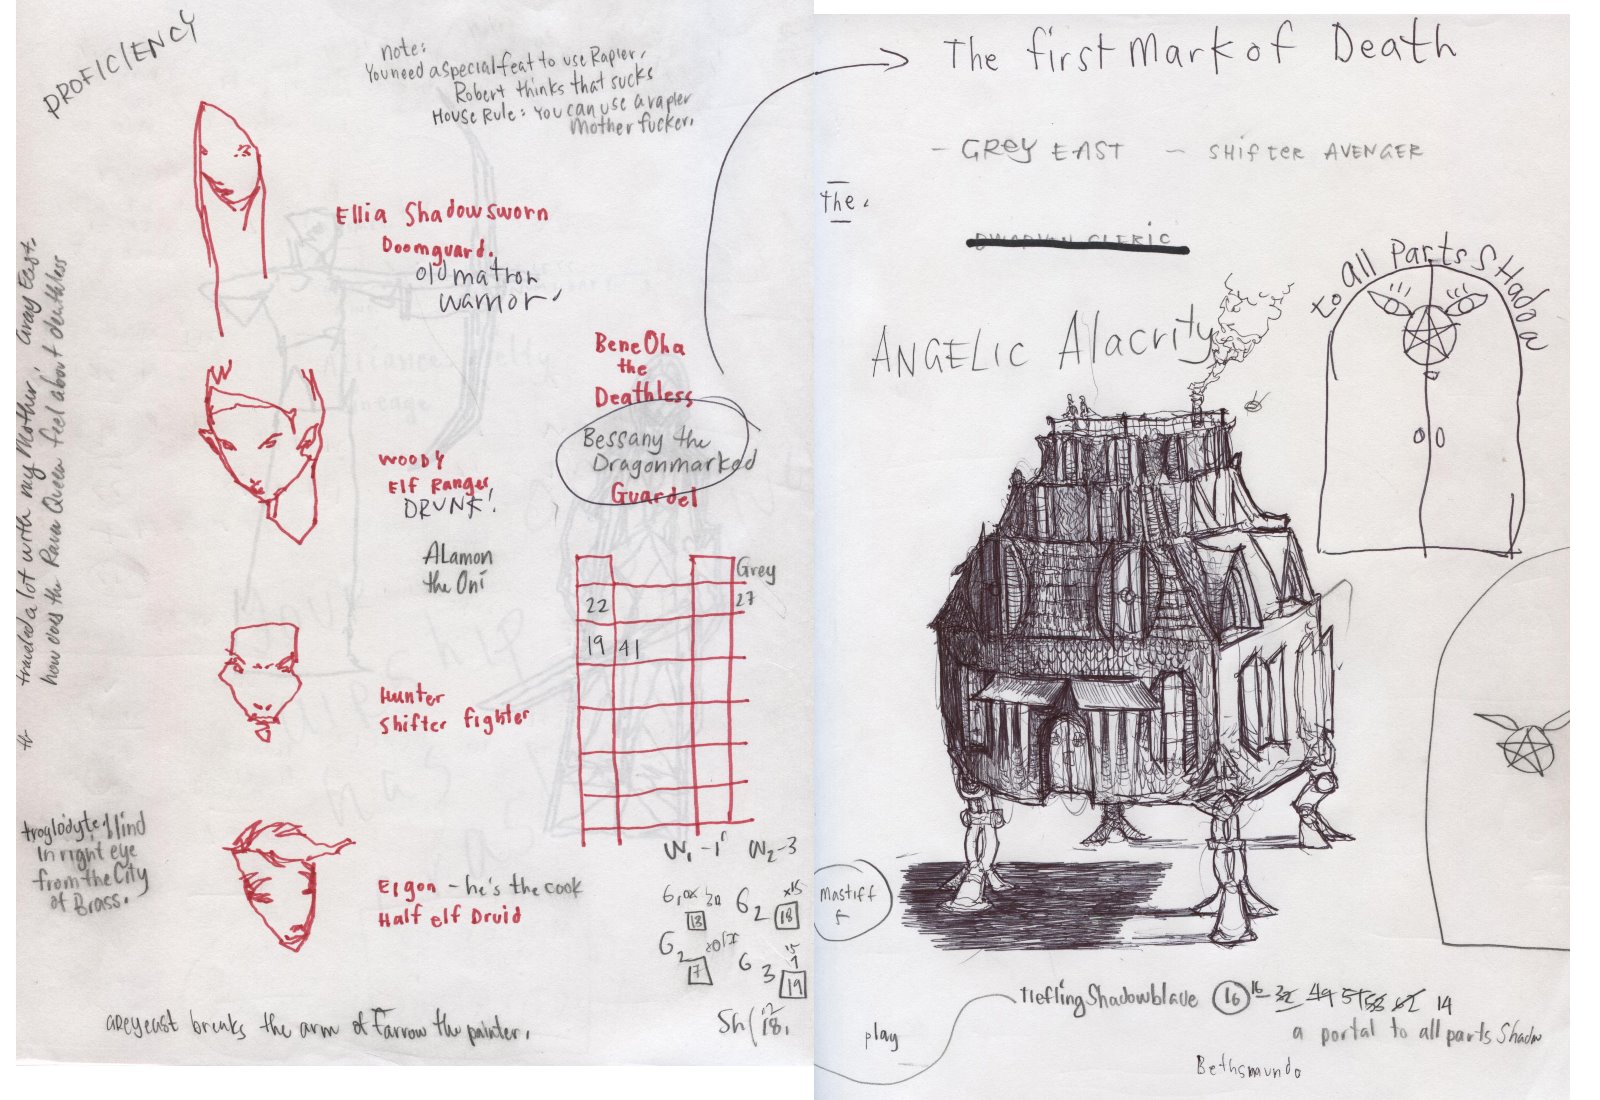 PROFICIENCY
note:
You need a special feat to use Rapier.
Robert thinks that sucks
House Rule: You can use a rapier
Mother fucker.
Ellia Shadowsworn
Doomguard.
old matron
warrior.
BeneOha
the
Deathless
Bessany the
Dragonmarked
Guardel
Woody
Elf Ranger
DRUNK!
Alamon
the Oni
Grey
22
27
19
41
Hunter
Shifter fighter
traveled a lot with my Mother, Gray East.
how does the Raven Queen feel about deathless
troglodyte blind
in right eye
from the City
of Brass.
Ergon - he's the cook
Half elf Druid
W1 -1
W2 -3
G2
18
G2
17
G 3
19
18.
Greyeast breaks the arm of Farrow the painter.
The first Mark of Death
- GREY EAST - SHifter AVENGER
the.
DWARVEN CLERIC
ANGELIC Alacrity
to all Parts SHadow
Mastiff
5
Tiefling Shadowblade 16 14
a portal to all parts Shadow
play
Bethsmundo